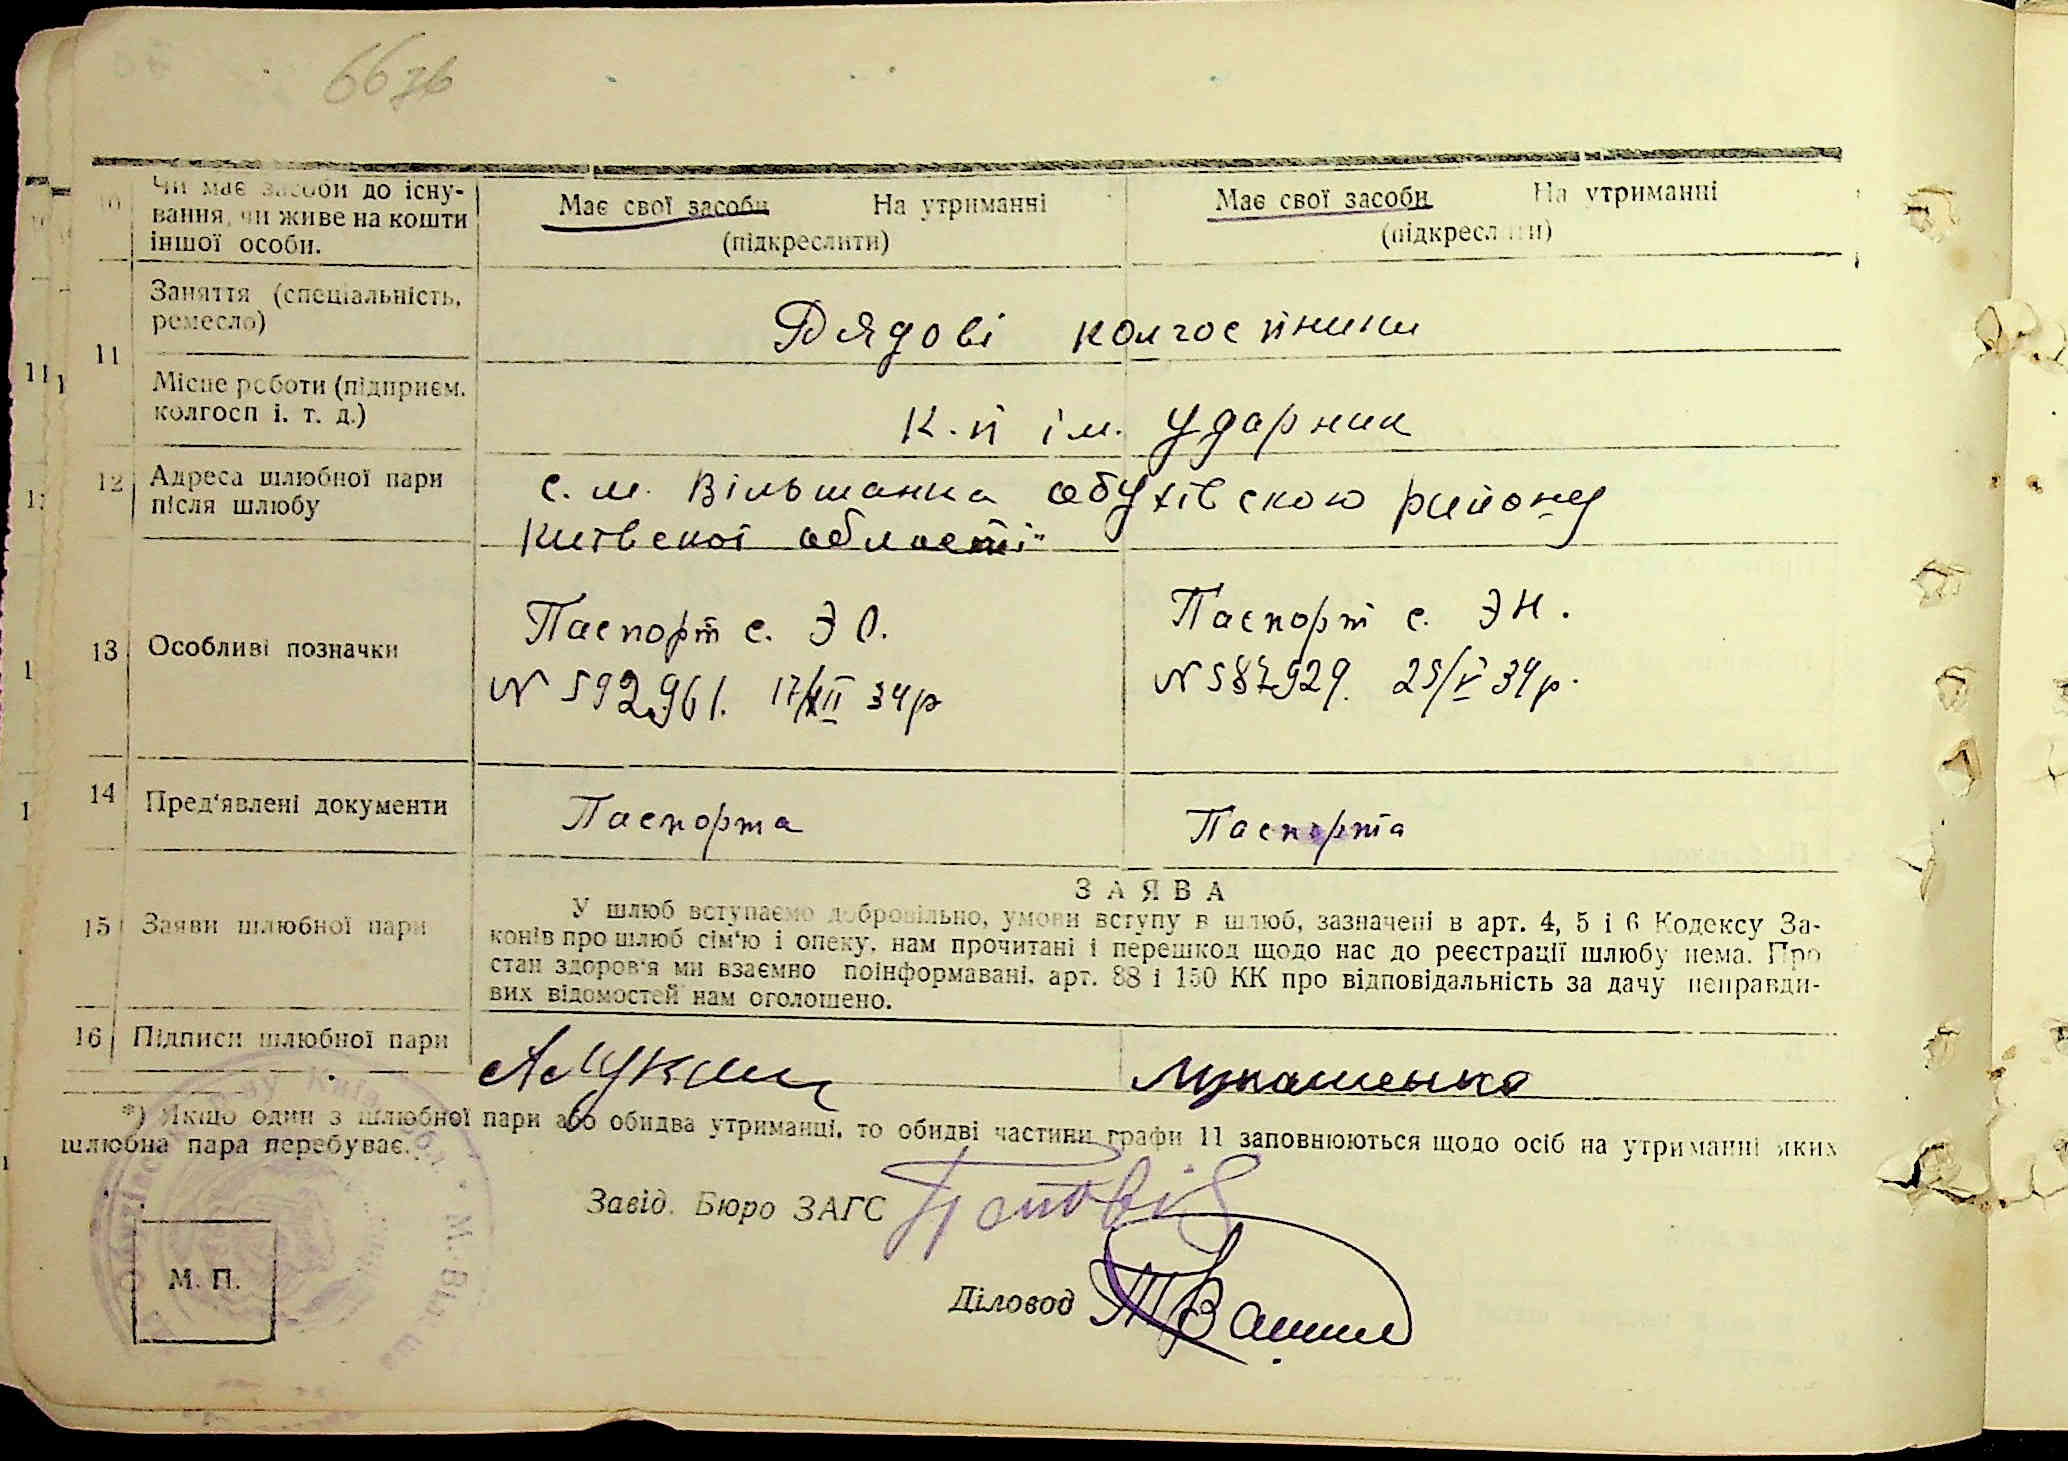 66зв
10 Чи має засоби до існу-
вання, чи живе на кошти
іншої особи.
Має свої засоби На утриманні
(підкреслити)
Має свої засоби На утриманні
(підкреслити)
11
Заняття (спеціальність,
ремесло)
Рядові колгоспники
Місце роботи (підприєм.
колгосп і. т. д.)
К.п ім. Ударник
12 Адреса шлюбної пари
після шлюбу
с. м. Вільшанка обухівскою району
Київскої області
13 Особливі позначки
Паспорт с. ЭО.
N 592961. 17/XII 34р
Паспорт с. ЭН.
N 587929. 25/V 34р.
14 Пред'явлені документи
Паспорта
Паспорта
15 Заяви шлюбної пари
ЗАЯВА
У шлюб вступаємо добровільно, умови вступу в шлюб, зазначені в арт. 4, 5 і 6 Кодексу За-
конів про шлюб сім'ю і опеку, нам прочитані і перешкод щодо нас до реєстрації шлюбу нема. Про
стан здоров'я ми взаємно поінформавані, арт. 88 і 150 КК про відповідальність за дачу неправди-
вих відомостей нам оголошено.
16 Підписи шлюбної пари
Лукашенко
*) Якщо один з шлюбної пари або обидва утриманці, то обидві частини графи 11 заповнюються щодо осіб на утриманні яких
шлюбна пара перебуває.
Завід. Бюро ЗАГС
М. П.
Діловод